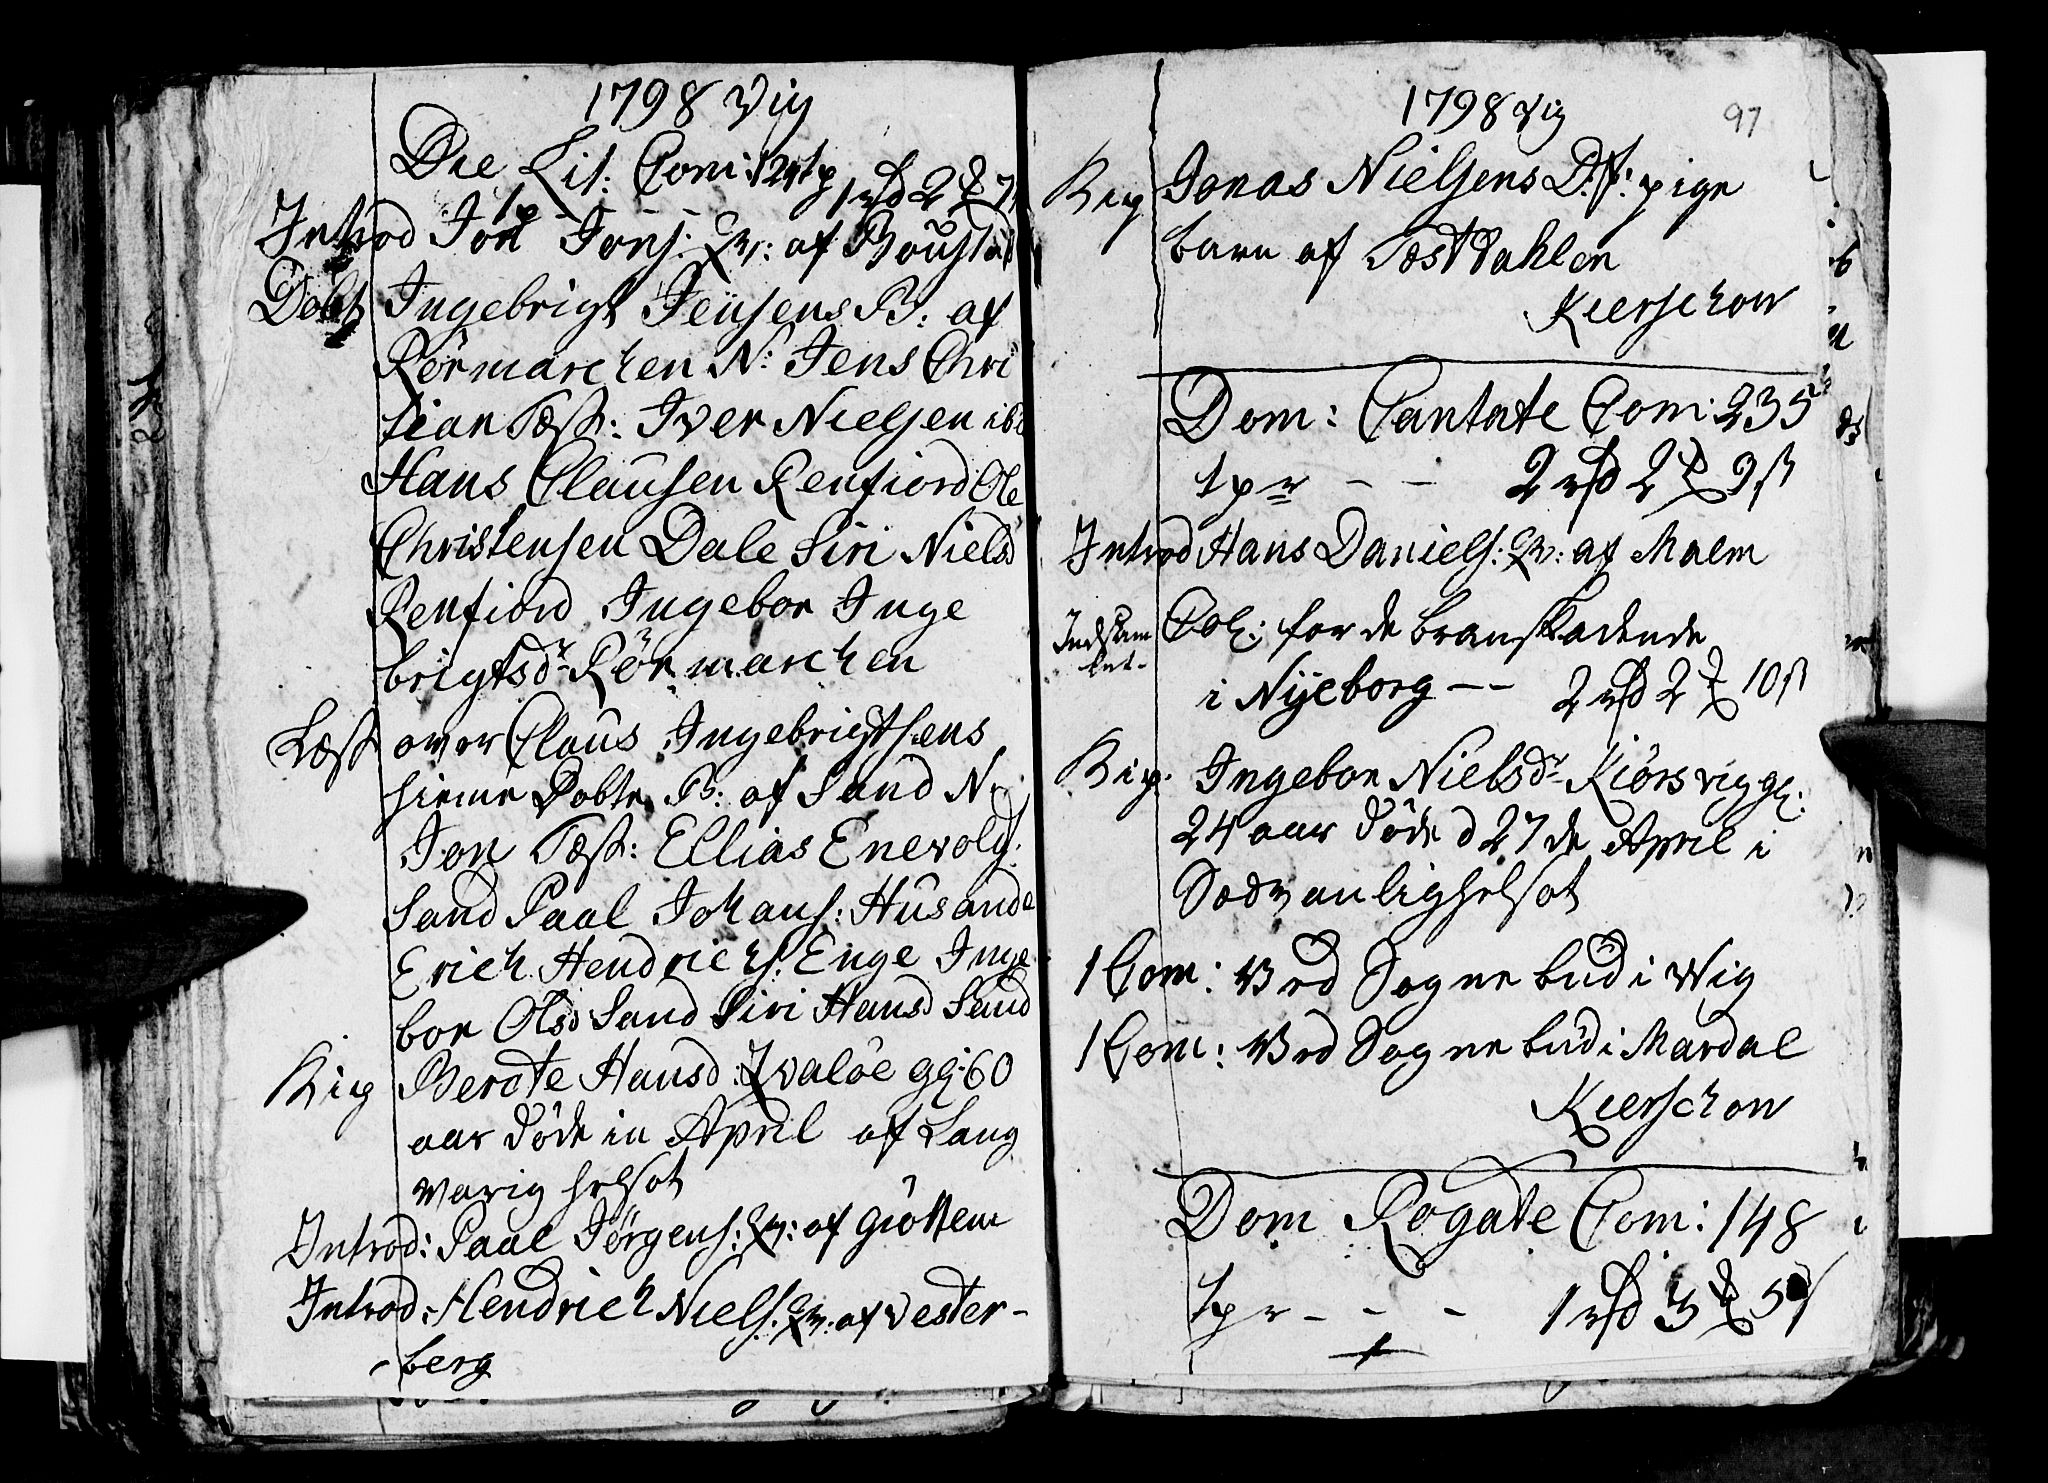 1798 Vig
Die Lit: Com: 121 tp 1 rd 2
Introd Jon Jons: Qv: af Boustad
Døbt Ingebrigt Jensens B: af
Rørmarchen N: Jens Chri
stian Test: Iver Nielsen ibd
Hans Clausen Renfiord Ole
Christensen Dale Siri Nielsd
Renfiord Ingebor Inge
brigtsdr Rørmarchen
Læst over Claus Ingebrigtsens
hieme Døbte B: af Sand N:
Jon Test: Ellias Enevolds:
Sand Paal Johans: Husande
Erich Hendrichs. Enge Inge
bor Olsd Sand Siri Hansd Sand
Kig Berete Hansd: Qvaløe gl: 60
aar døde in April af Lang
varig helsot
Introd: Paal Jørgens: Qv: af Giøttem
Introd: Hendrich Niels: Qv: af Vester-
-berg
1798 Vig 97
Kig Jonas Nielsens D.f: pige
barn af Tostdahlen
Kierschow
Dom: Cantate Com: 235
tpr - - 2 rd 2 9 s
Introd Hans Daniels: Qv: af Malm
Indsam Col: for de branskadende
let- i Nyeborg -- 2 rd 2 10 s
Kig. Ingebor Nielsdr Kiørsvig gl:
24 aar døde d 27de April i
Sædvanlighelsot
1 Com: Ved Sognebud i Wig
1 Com: Ved Sognebud i Mardal
Kierschow
Dom Rogate Com: 148
tpr - - - 1 rd 3 5 s